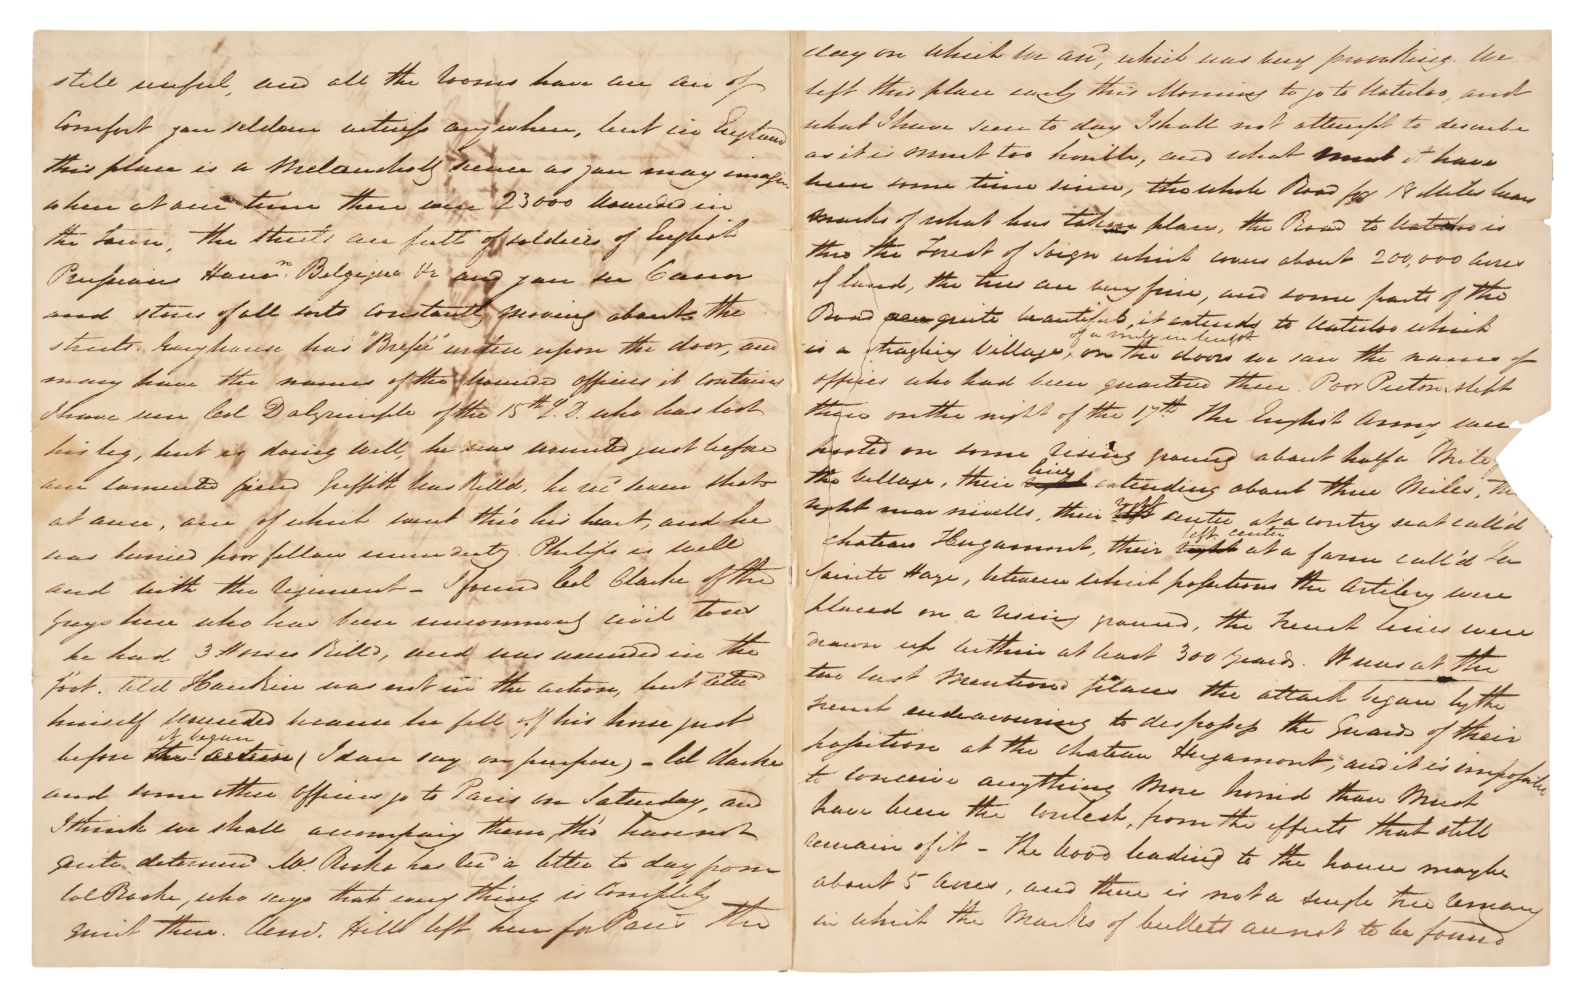 still useful, and all the rooms have an air of
Comfort you seldom witness anywhere, but in England
this place is a Melancholy Scene as you may imagine
when at one time there were 23000 Wounded in
the Town, the streets are full of soldiers of English
Prussians Hanon. Belgiques &c and you see Canon
and stores of all sorts Constantly moving about the
streets. Every house has "Blessé" written upon the door, and
many have the names of the wounded officers it contains
I have seen Col Dalrymple of the 15th L.D. who has lost
his leg, but is doing well, he was wounded just before
our lamented friend Griffith was Kill'd, he recd seven shots
at once, one of which went thro his heart, and he
was buried poor fellow immediately. Philips is well
and with the regiment - I found Col Clarke of the
Greys here who has been uncommonly civil to us
he had 3 Horses Kill'd, and was wounded in the
foot. Old Hankin was not in the action, but stated
himself wounded because he fell off his horse just
before the action it began (I dare say on purpose) - Col Clarke
and some other officers go to Paris on Saturday, and
I think we shall accompany them, tho' have not
quite determined Mr. Rooke has recd a letter to day from
Col Rooke, who says that every thing is Completely
quiet there. Genl. Hill left here for Paris the
day on which we arrd, which was very provoking. We
left this place early this Morning to go to Waterloo, and
what I have seen to day I shall not attempt to describe
as it is most too horrible, and what must it have
been some time since, the whole Road for 18 Miles bears
marks of what has taken place, the Road to Waterloo is
thro the Forest of Soign which covers about 200,000 acres
of land, the trees are very fine, and some parts of the
Road are quite beautiful, it extends to Waterloo which
is a stragling Village, of a mile in length on the doors we saw the names of
officers who had been quartered there. Poor Picton slept
there on the night of the 17th. The English Army were
posted on some rising ground about half a Mile
the village, their right line extending about three Miles, the
right near nivells, their left right center at a country seat call'd
Chateau Hugamont, their right left center at a farm call'd La
Sainte Haye, between which positions the Artillery were
placed on a rising ground, the French lines were
drawn up within at least 300 yards. It was at the
two last mentioned places the attack began by the
french endeavouring to despossess the Guards of their
possition at the Chateau Hugamont, and it is impossible
to conceive anything more horrid than Must
have been the Contest, from the effects that still
remain of it - The Wood leading to the house may be
about 5 Acres, and there is not a single tree remaing
in which the Marks of bullets are not to be found